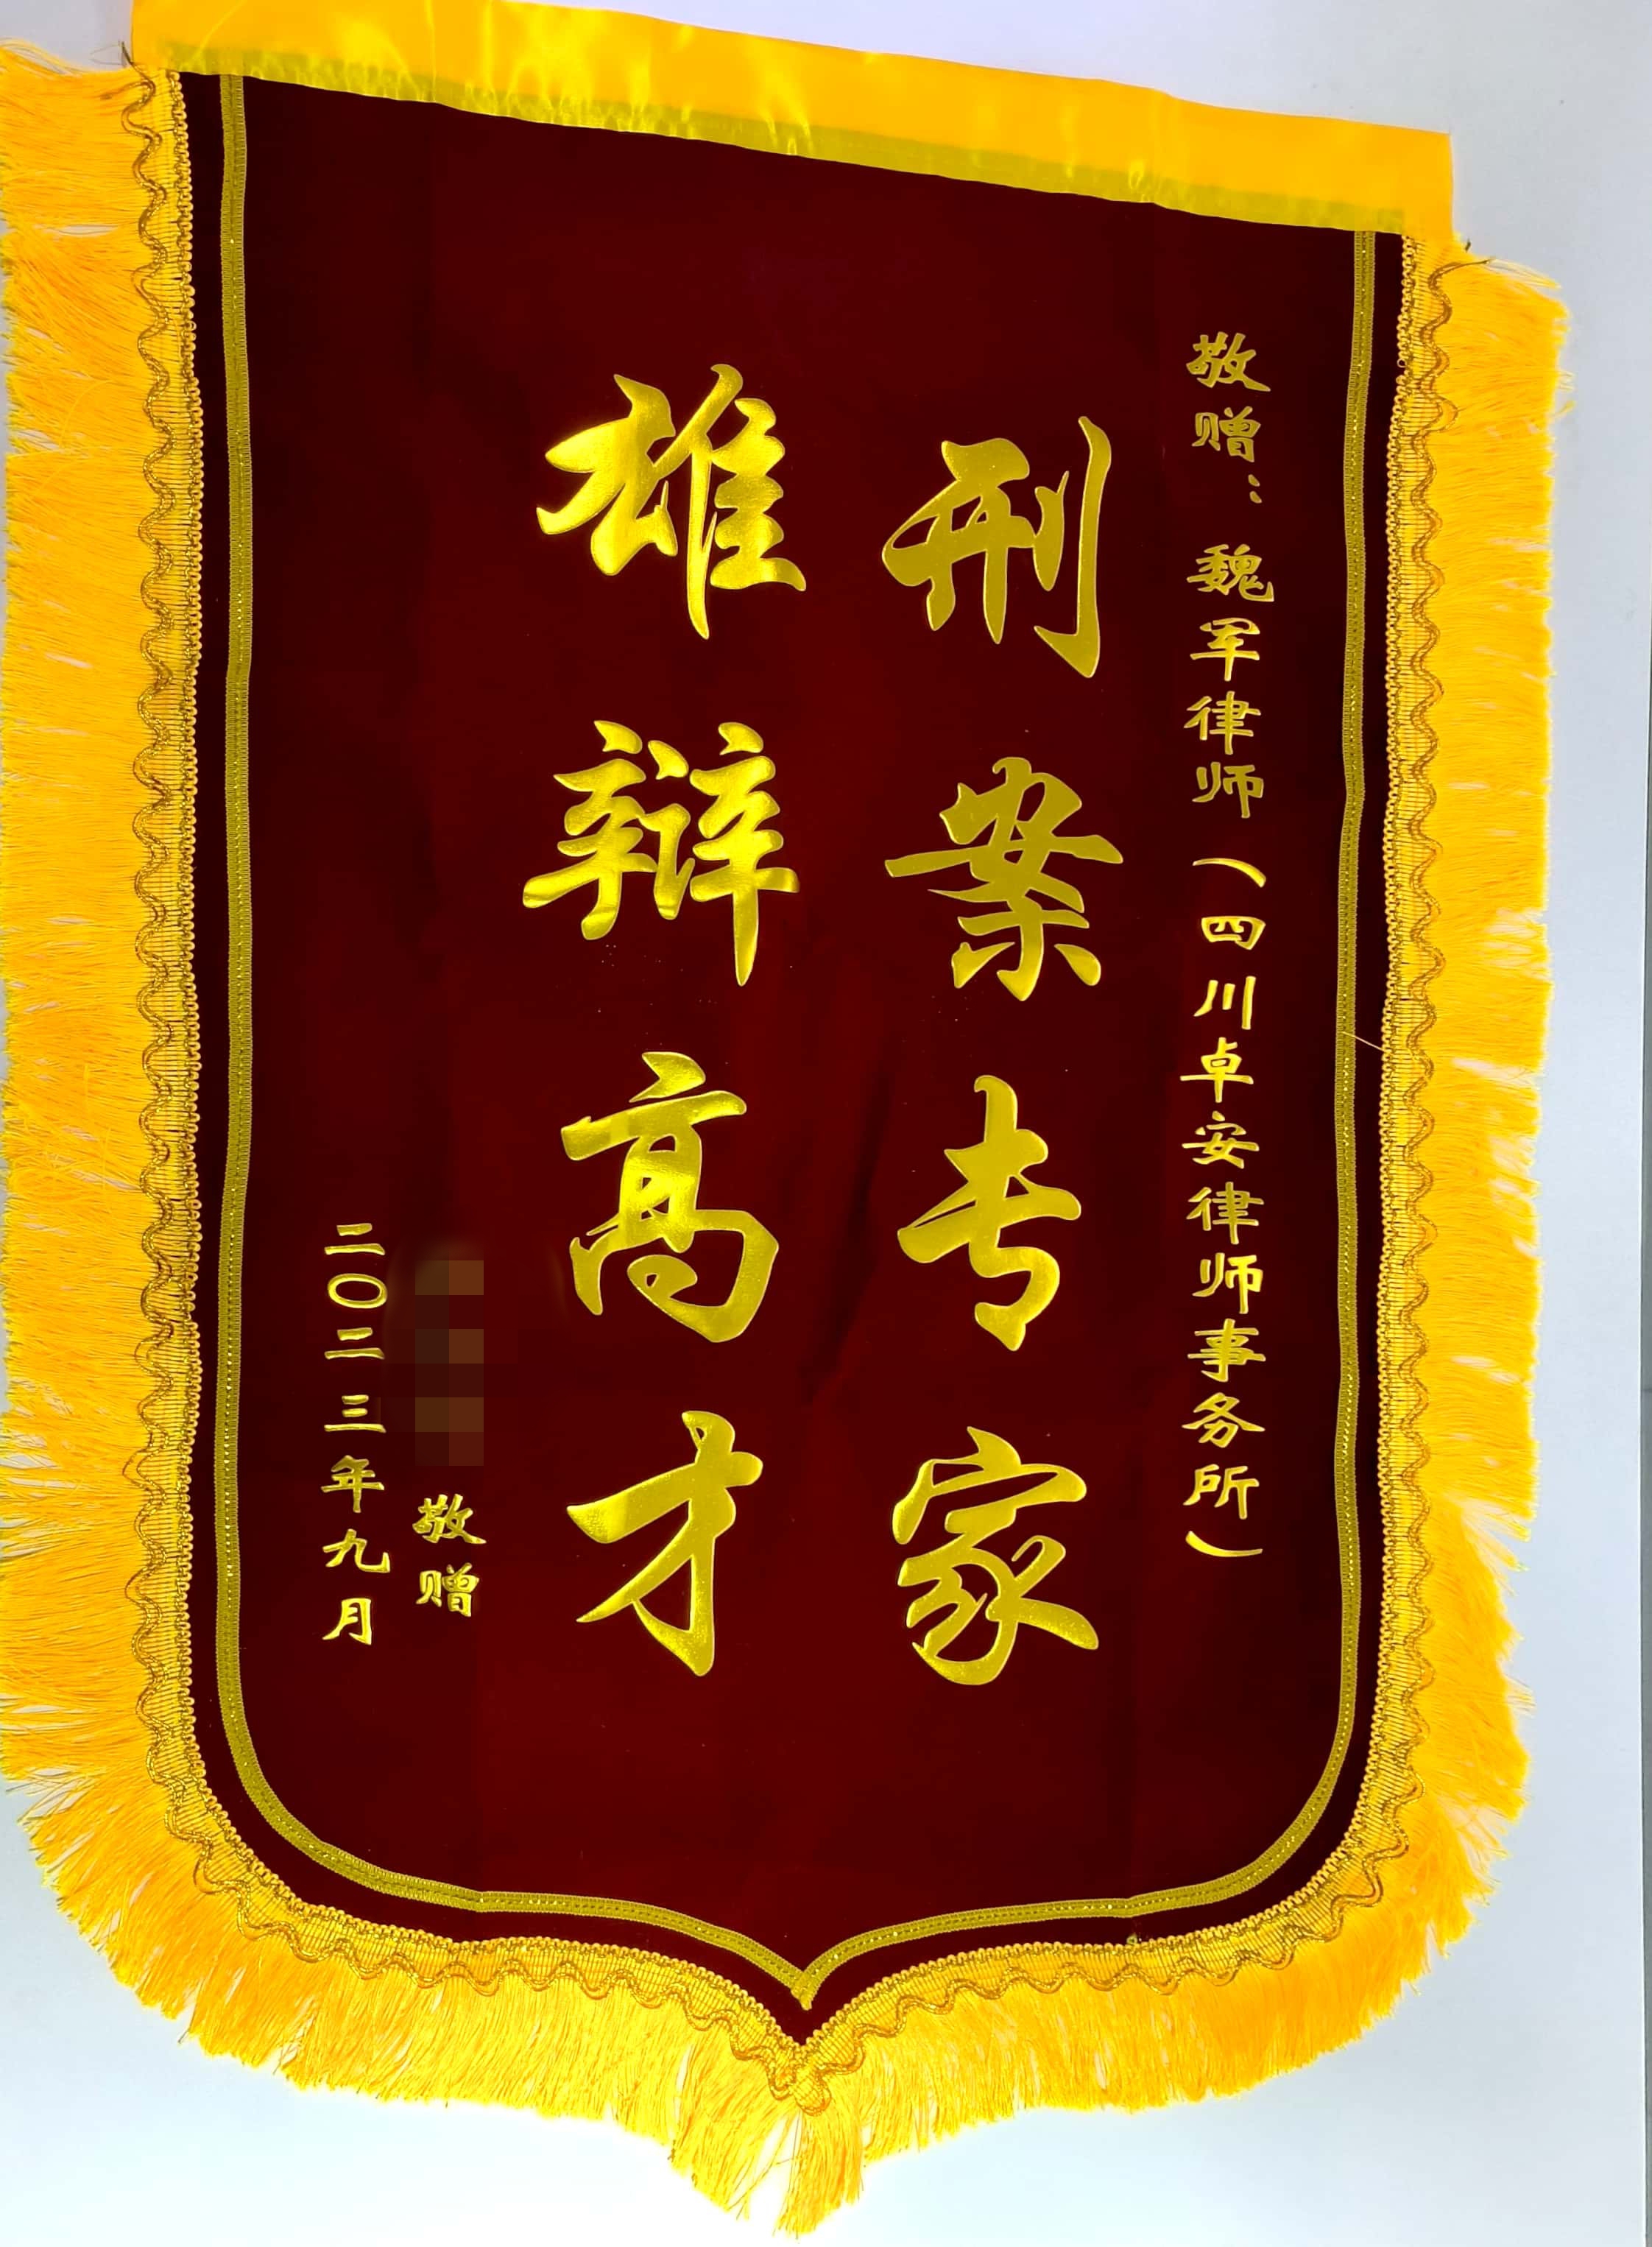 敬赠：魏军律师（四川卓安律师事务所）
刑案专家
雄辩高才
敬赠
二〇二三年九月